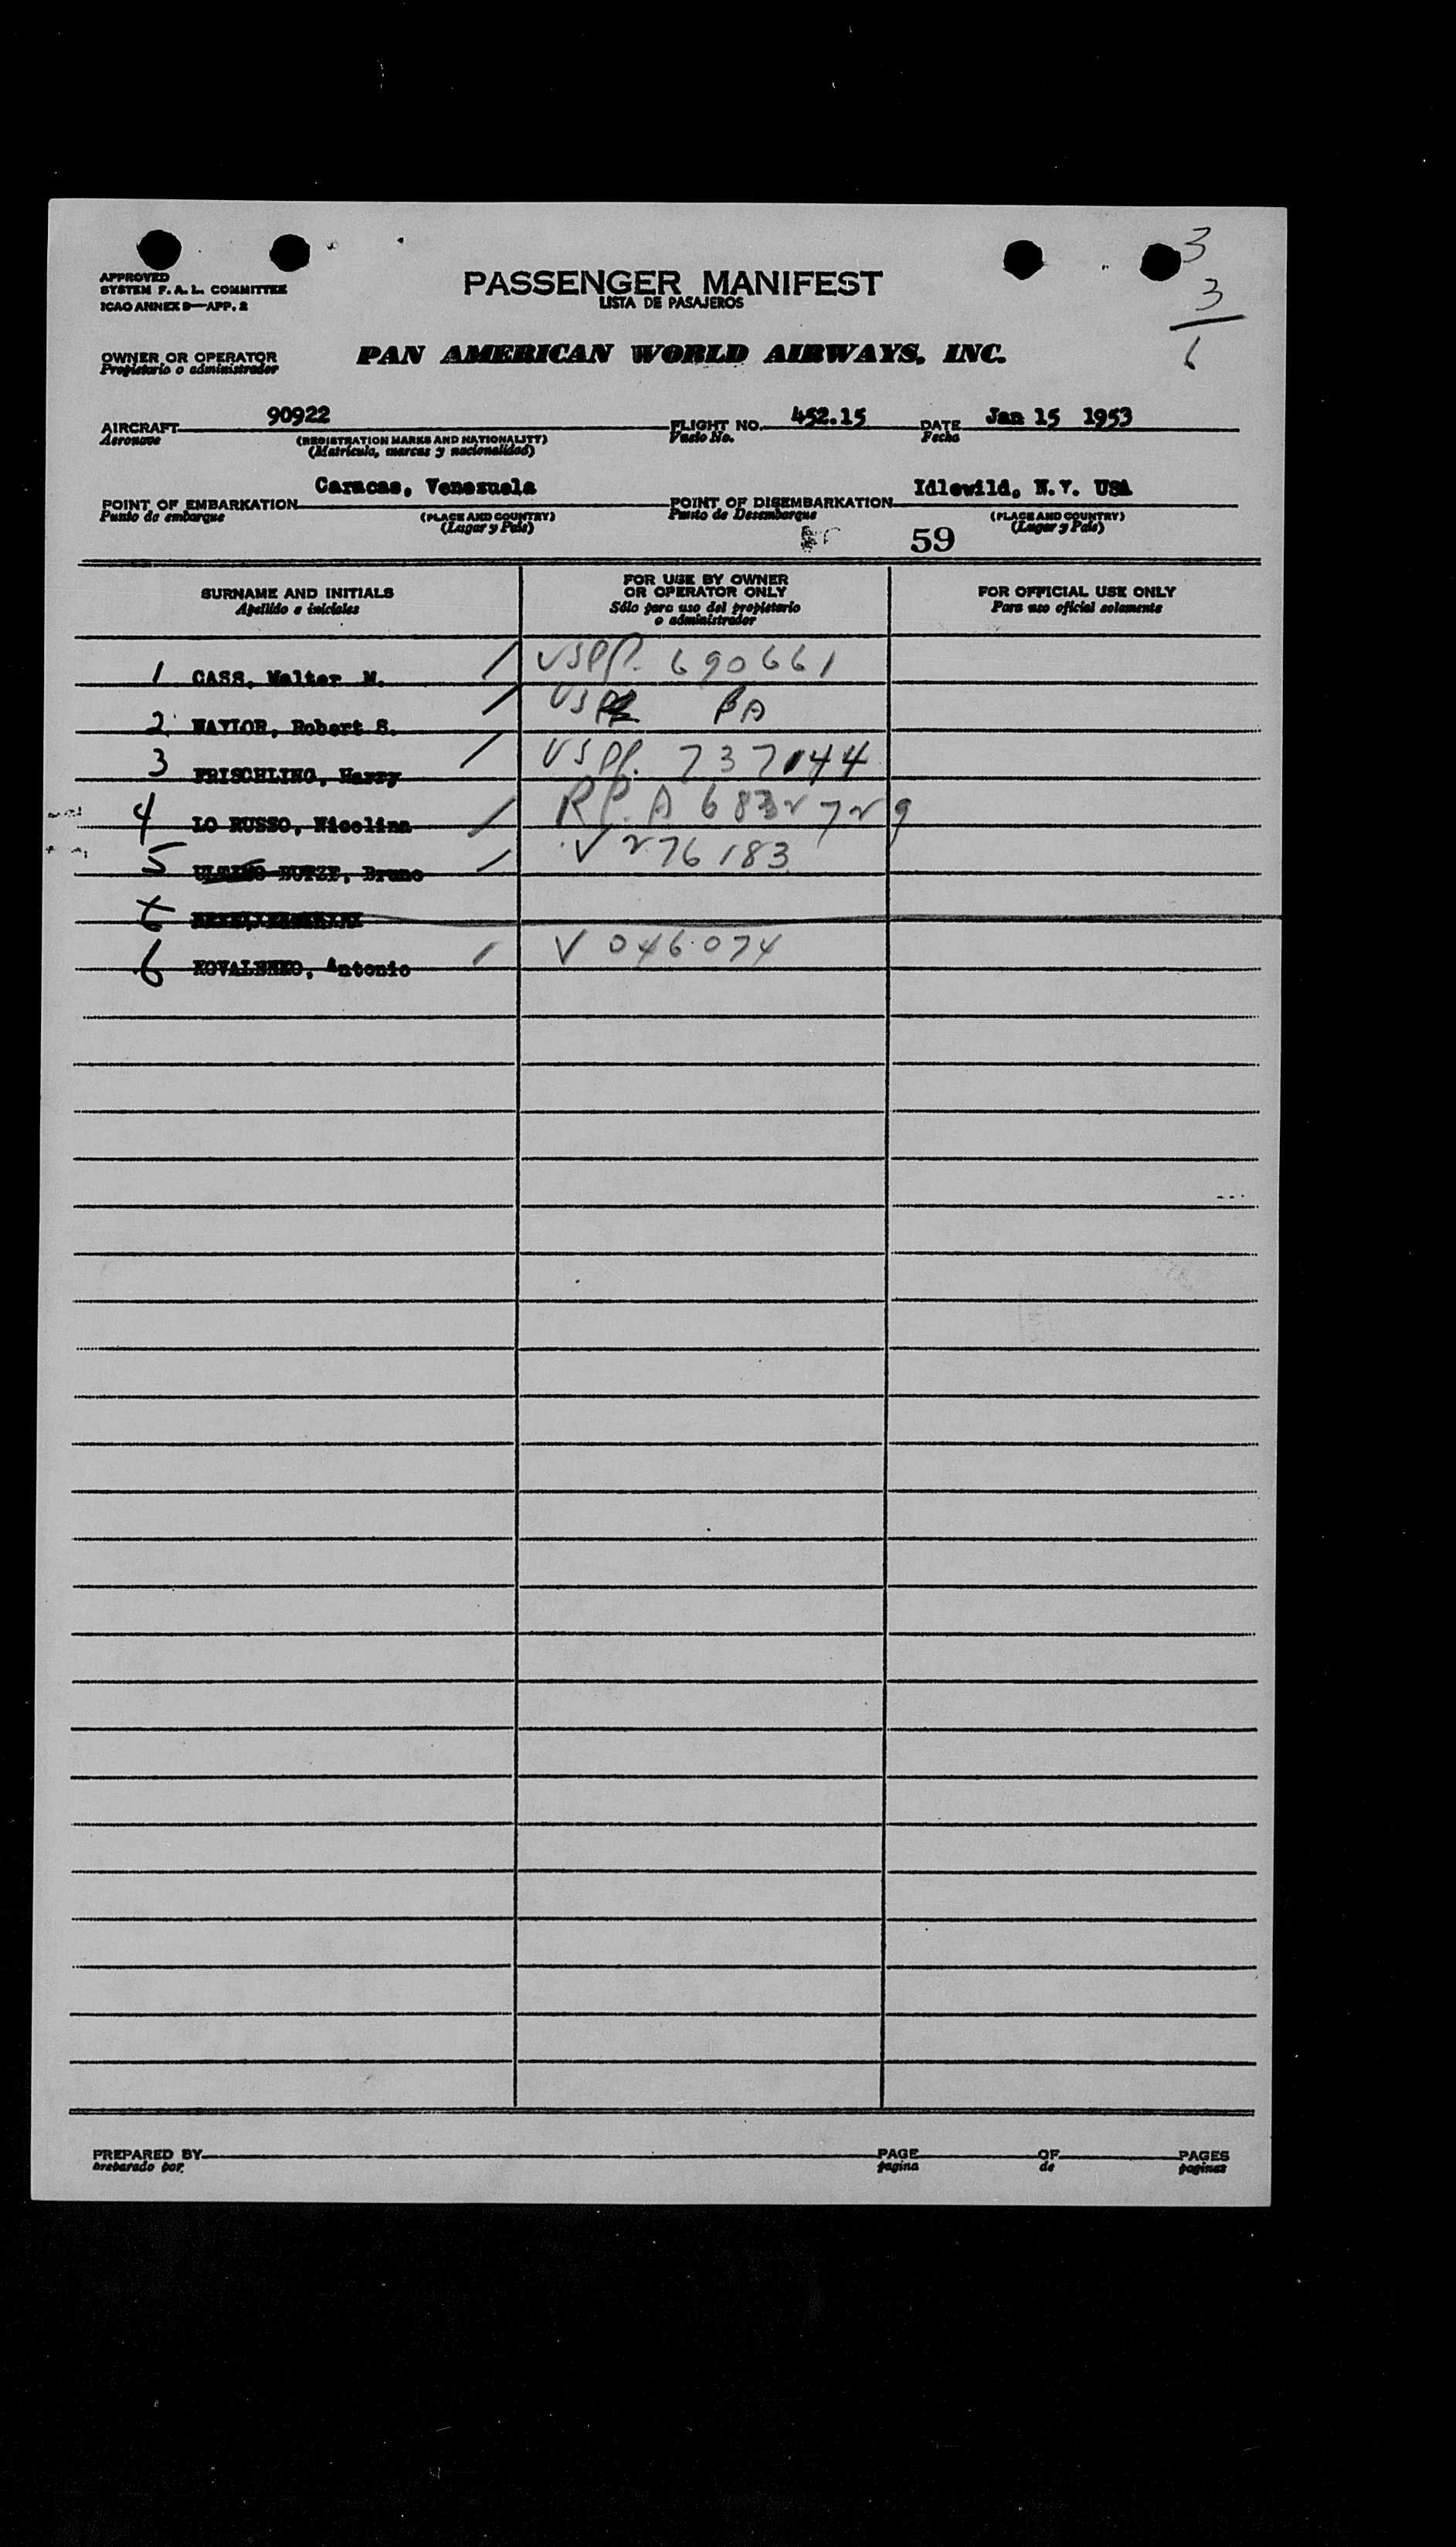 3
3
6
APPROVED
SYSTEM F. A. L. COMMITTEE
ICAO ANNEX 9—APP. 2
PASSENGER MANIFEST
LISTA DE PASAJEROS
OWNER OR OPERATOR
Propietario o administrador
PAN AMERICAN WORLD AIRWAYS, INC.
AIRCRAFT 90922 FLIGHT NO. 452.15 DATE Jan 15 1953
Aeronave (REGISTRATION MARKS AND NATIONALITY) Vuelo No. Fecha
(Matricula, marcas y nacionalidad)
POINT OF EMBARKATION Caracas, Venezuela POINT OF DISEMBARKATION Idlewild, N.Y. USA
Punto de embarque (PLACE AND COUNTRY) Punto de Desembarque (PLACE AND COUNTRY)
(Lugar y País) (Lugar y País)
59
SURNAME AND INITIALS
Apellido e iniciales
FOR USE BY OWNER
OR OPERATOR ONLY
Sólo para uso del propietario
o administrador
FOR OFFICIAL USE ONLY
Para uso oficial solamente
1 CASS, Walter M. / USPP. 690661
2 NAYLOR, Robert S. / US BA
3 FRISCHLING, Harry / USPP. 737144
4 LO RUSSO, Nicolina / RP. A 6832729
5 BUTZE, Bruno / V 276183
6 KOVALENKO, Antonio / V 046074
PREPARED BY PAGE OF PAGES
preparado por. pagina de paginas